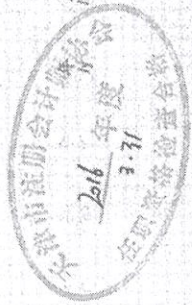 无锡市注册会计师协会
2016 年度
3.31
任职资格检查合格